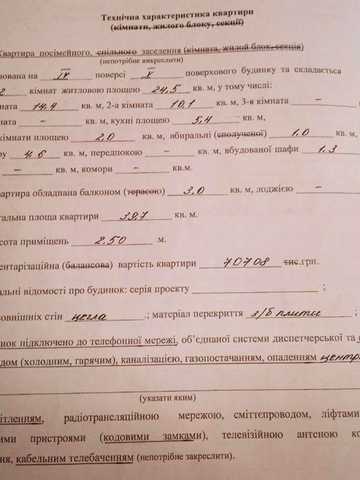 Технічна характеристика квартири
(кімнати, жилого блоку, секції)
Квартира посімейного, спільного заселення (кімната, жилий блок, секція)
(непотрібне викреслити)
ована на IX поверсі X поверхового будинку та складається
2 кімнат житловою площею 24,5 кв. м, у тому числі:
ната 14,4 кв. м, 2-а кімната 10,1 кв. м, 3-я кімната –
ната – кв. м, кухні площею 5,4 кв. м,
кімнати площею 2,0 кв. м, вбиральні (сполученої) 1,0 кв. м,
ру 4,6 кв. м, передпокою – кв. м, вбудованої шафи 1,3
– кв. м, комори – кв.м.
артира обладнана балконом (терасою) 3,0 кв. м, лоджією –
гальна площа квартири 39,7 кв. м.
сота приміщень 2,50 м.
ентарізаційна (балансова) вартість квартири 70708 тис.грн.
альні відомості про будинок: серія проекту ;
овнішніх стін цегла ; матеріал перекриття з/б плити ;
нок підключено до телефонної мережі, об'єднаної системи диспетчерської та
дом (холодним, гарячим), каналізацією, газопостачанням, опаленням центр
(указати яким)
ітленням, радіотрансляційною мережою, сміттєпроводом, ліфтами
ими пристроями (кодовими замками), телевізійною антеною ко
ня, кабельним телебаченням (непотрібне закреслити).